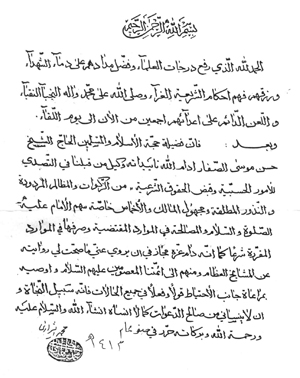 بسم الله الرحمن الرحيم
الحمد لله الذي رفع درجات العلماء وفضل مدادهم على دماء الشهداء
ورزقهم فهم احكام الشريعة الغراء وصلى الله على محمد وآله النجباء النقباء
و اللعن الدائم على اعدائهم اجمعين من الآن الى يوم اللقاء
وبعد : فان فضيلة حجة الاسلام والمسلمين الحاج الشيخ
حسن موسى الصفار ادام الله تأييداته وكيل من قبلنا في التصدي
للأمور الحسبية وقبض الحقوق الشرعية من الزكوات والمظالم المردودة
والنذور المطلقة ومجهول المالك والأخماس خاصة سهم الامام عليه
الصلوة والسلام والمصالحة في الموارد المقتضية وصرفها في الموارد
المقررة شرعا كما انه دام عزه مجاز في ان يروي عني ما صحت لي روايته
عن المشايخ العظام ومنهم الى ائمتنا المعصومين عليهم السلام و اوصيه
بمراعاة جانب الاحتياط قولا وفعلا في جميع الحالات فانه سبيل النجاة و
ان لا ينساني من صالح الدعوات كما لا انساه انشاء الله والسلام عليه
ورحمة الله وبركاته حرر في صفر عام
١٤١٣ هـ